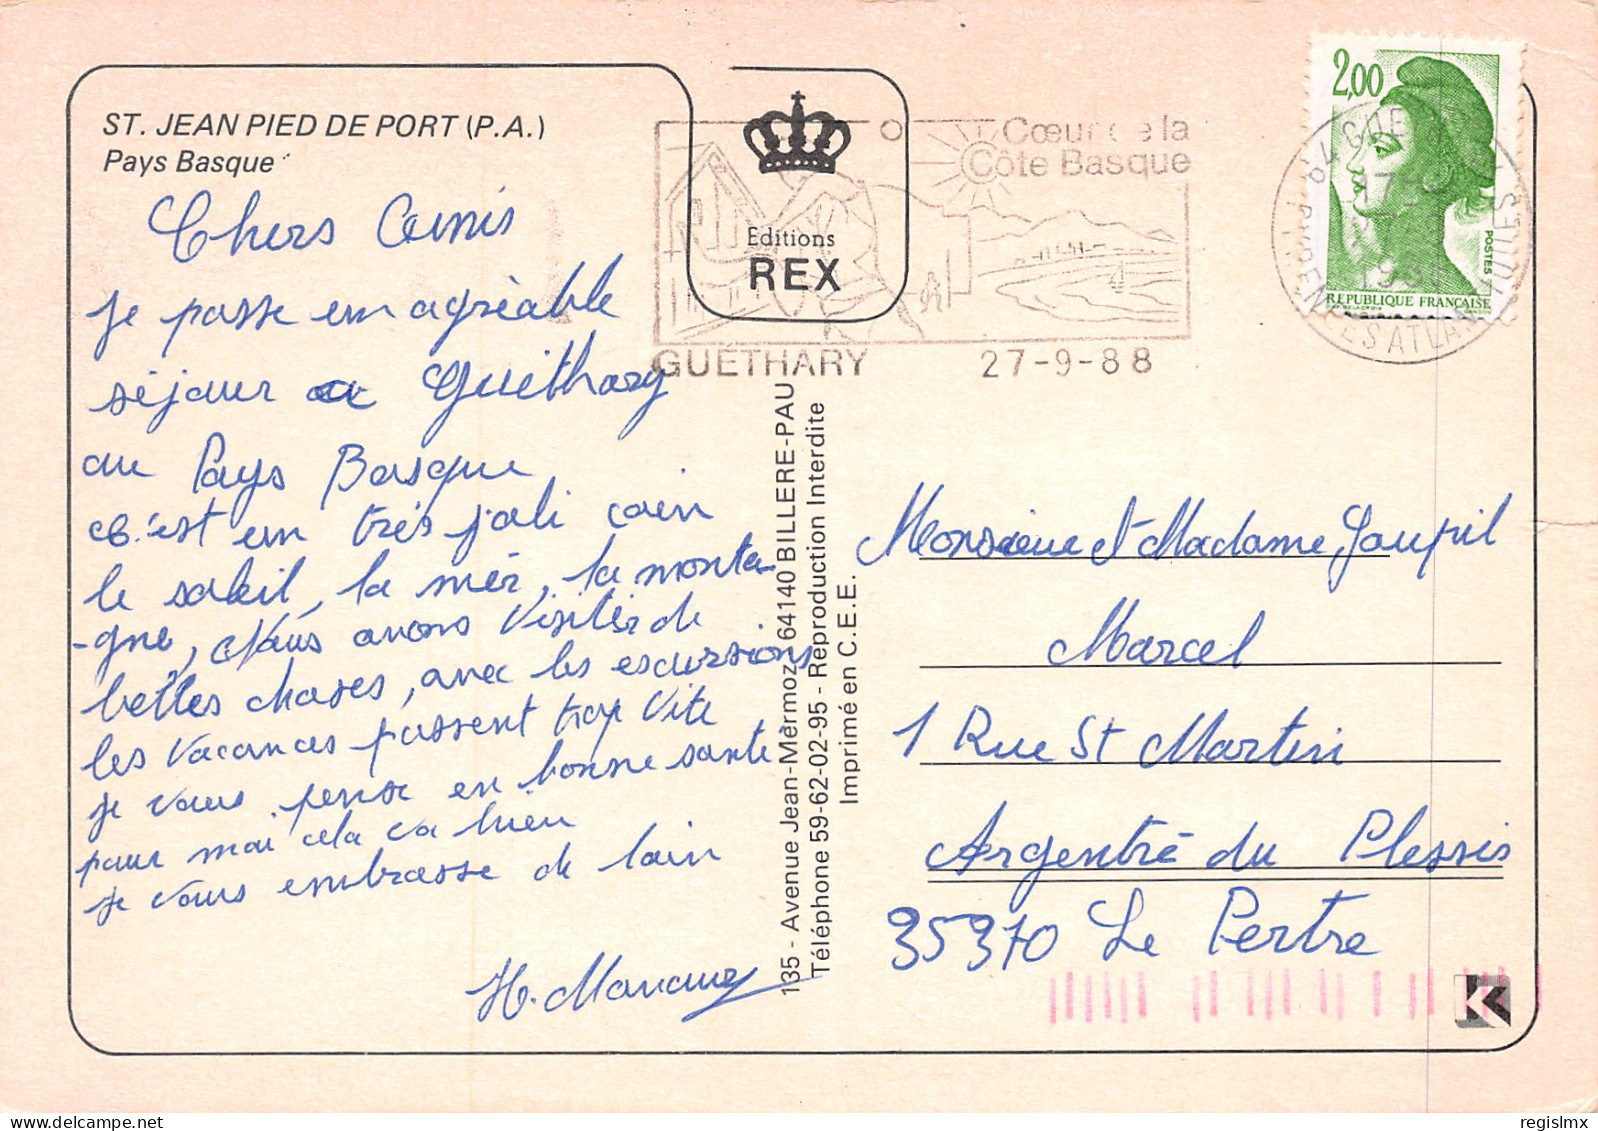 ST. JEAN PIED DE PORT (P.A.)
Pays Basque
Chers Amis
je passe um agréable
séjour a Guéthary
au Pays Basque
c'est um très joli coin
le soleil, la mér, la monta-
-gne, Nous avons visités de
belles choses, avec les escursions
les vacances passent trop vite
je vous pense en bonne sante
pour moi cela va bien
je vous embrasse de loin
Editions
REX
Cœur de la
Côte Basque
GUÉTHARY 27-9-88
135 - Avenue Jean-Mermoz 64140 BILLERE-PAU
Téléphone 59-62-02-95 - Reproduction Interdite
Imprimé en C.E.E.
2,00
POSTES
REPUBLIQUE FRANÇAISE
Monsieur et Madame Jaupil
Marcel
1 Rue St Martin
Argentré du Plessis
35370 Le Pertre
regislmx